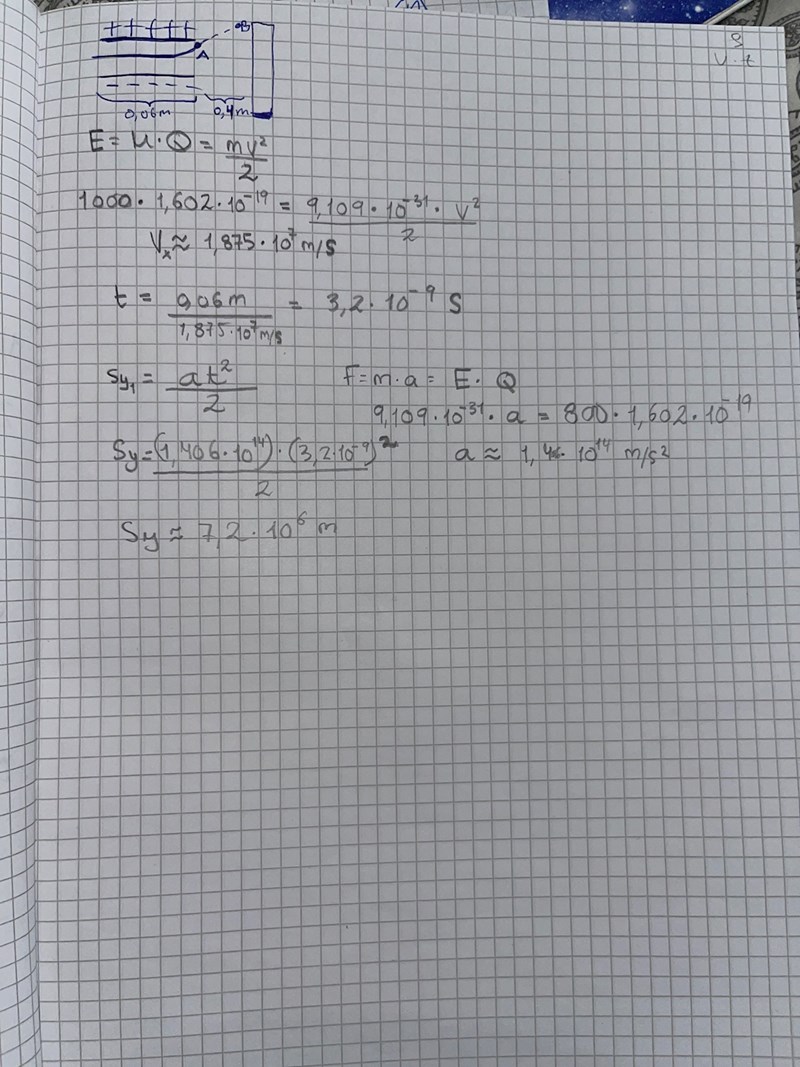 + + + + +
B
A
0,06m 0,4m
E = U · Q = mv²/2
1000 · 1,602 · 10⁻¹⁹ = 9,109 · 10⁻³¹ · v²/2
Vₓ ≈ 1,875 · 10⁷ m/s
t = 0,06m/1,875·10⁷ m/s = 3,2 · 10⁻⁹ s
Sy₁ = at²/2 F = m · a = E · Q
9,109 · 10⁻³¹ · a = 800 · 1,602 · 10⁻¹⁹
Sy = (1,406 · 10¹⁴) · (3,2 · 10⁻⁹)²/2 a ≈ 1,4 · 10¹⁴ m/s²
Sy ≈ 7,2 · 10⁶ m